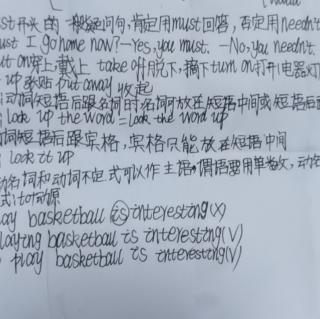 st开头的一般疑问句,肯定用must回答,否定用needn't
ust I go home now?-Yes, you must. -No, you needn't.
ut on穿上,戴上 take off脱下,摘下turn on打开(电器灯
up张贴 put away 收起
动词短语后跟名词时名词放在短语中间或短语后面
look up the word = look the word up
动词短语后跟宾格,宾格只能放在短语中间
look it up
动名词和动词不定式可以作主语,谓语要用单数,动名
式:to动原
lay basketball is interesting(x)
laying basketball is interesting(√)
play basketball is interesting(√)